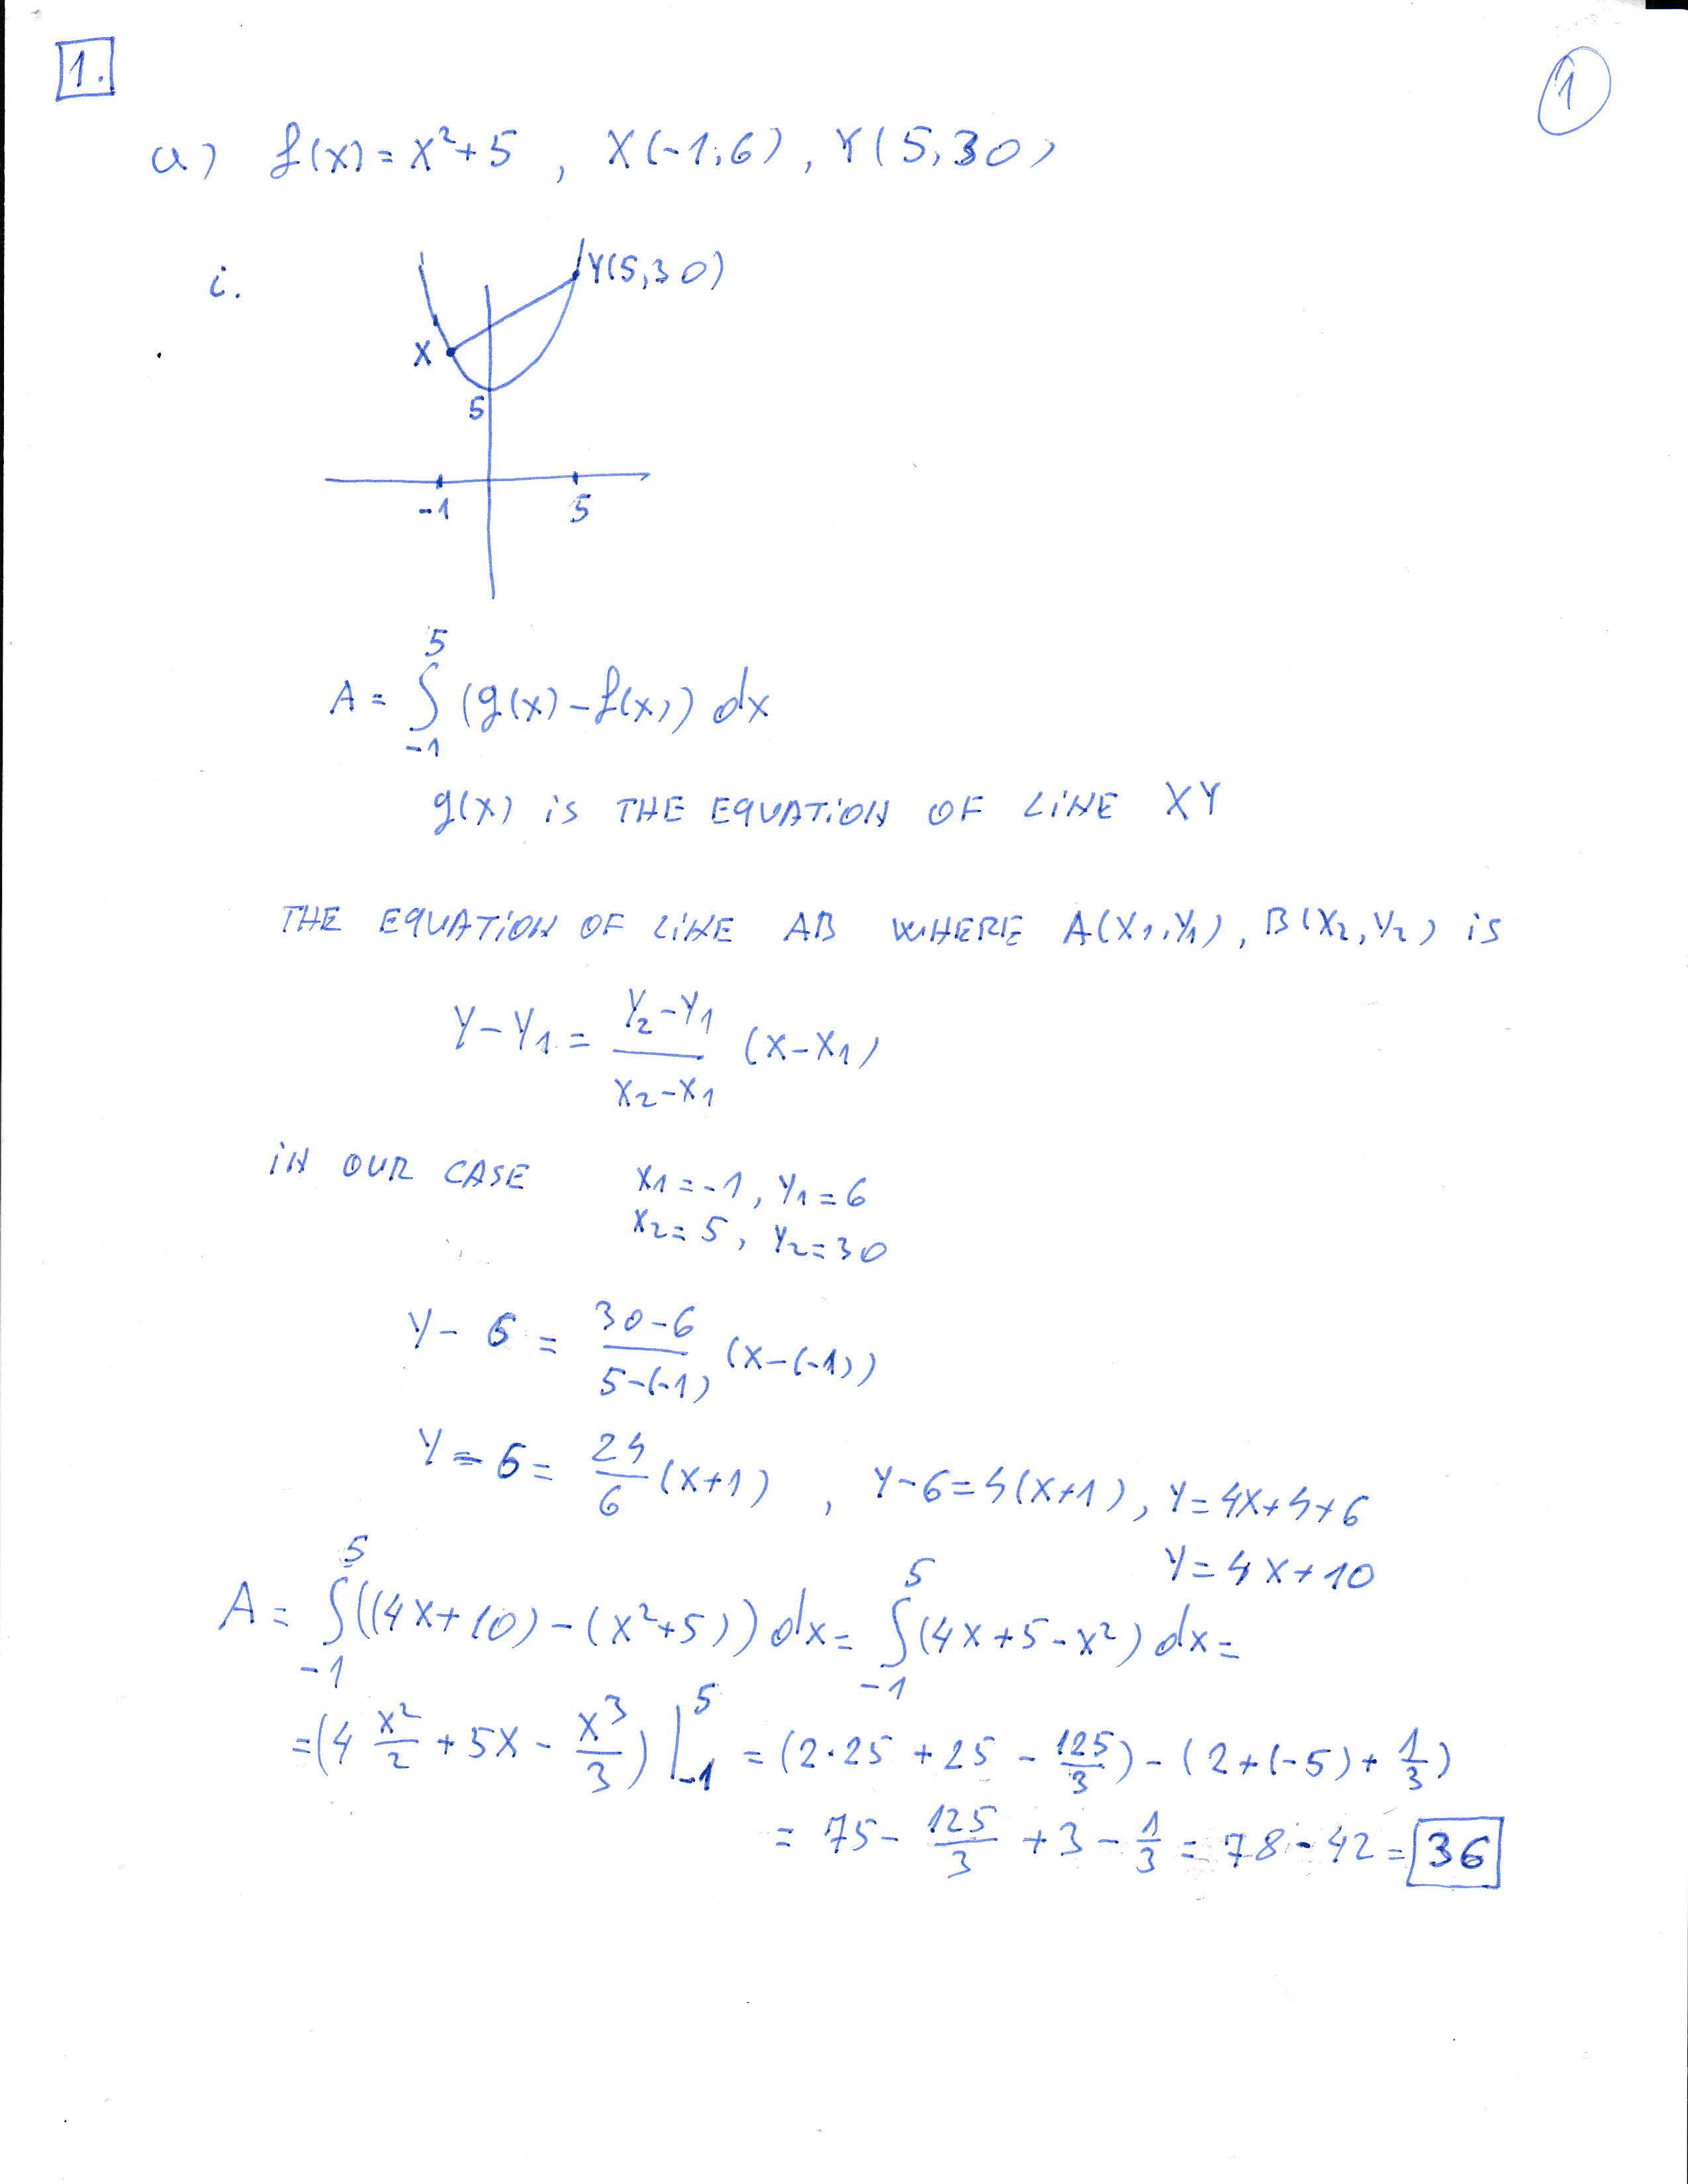 1.
1
a) f(x) = x²+5 , X(-1,6), Y(5,30)
i.
Y(5,30)
X
5
-1 5
A = ∫₋₁⁵ (g(x) - f(x)) dx
g(x) iS THE EQUATiON OF LiNE XY
THE EQUATiON OF LiNE AB WHERE A(X₁,Y₁), B(X₂,Y₂) iS
Y-Y₁ = (Y₂-Y₁)/(X₂-X₁) (X-X₁)
iN OUR CASE X₁=-1, Y₁=6
X₂=5, Y₂=30
Y-6 = (30-6)/(5-(-1)) (X-(-1))
Y-6 = 24/6 (X+1) , Y-6=4(X+1), Y=4X+4+6
Y=4X+10
A = ∫₋₁⁵ ((4X+10)-(X²+5)) dx = ∫₋₁⁵ (4X+5-X²) dx =
=(4 X²/2 + 5X - X³/3) |₋₁⁵ = (2·25 + 25 - 125/3) - (2+(-5)+ 1/3)
= 75 - 125/3 + 3 - 1/3 = 78 - 42 = 36